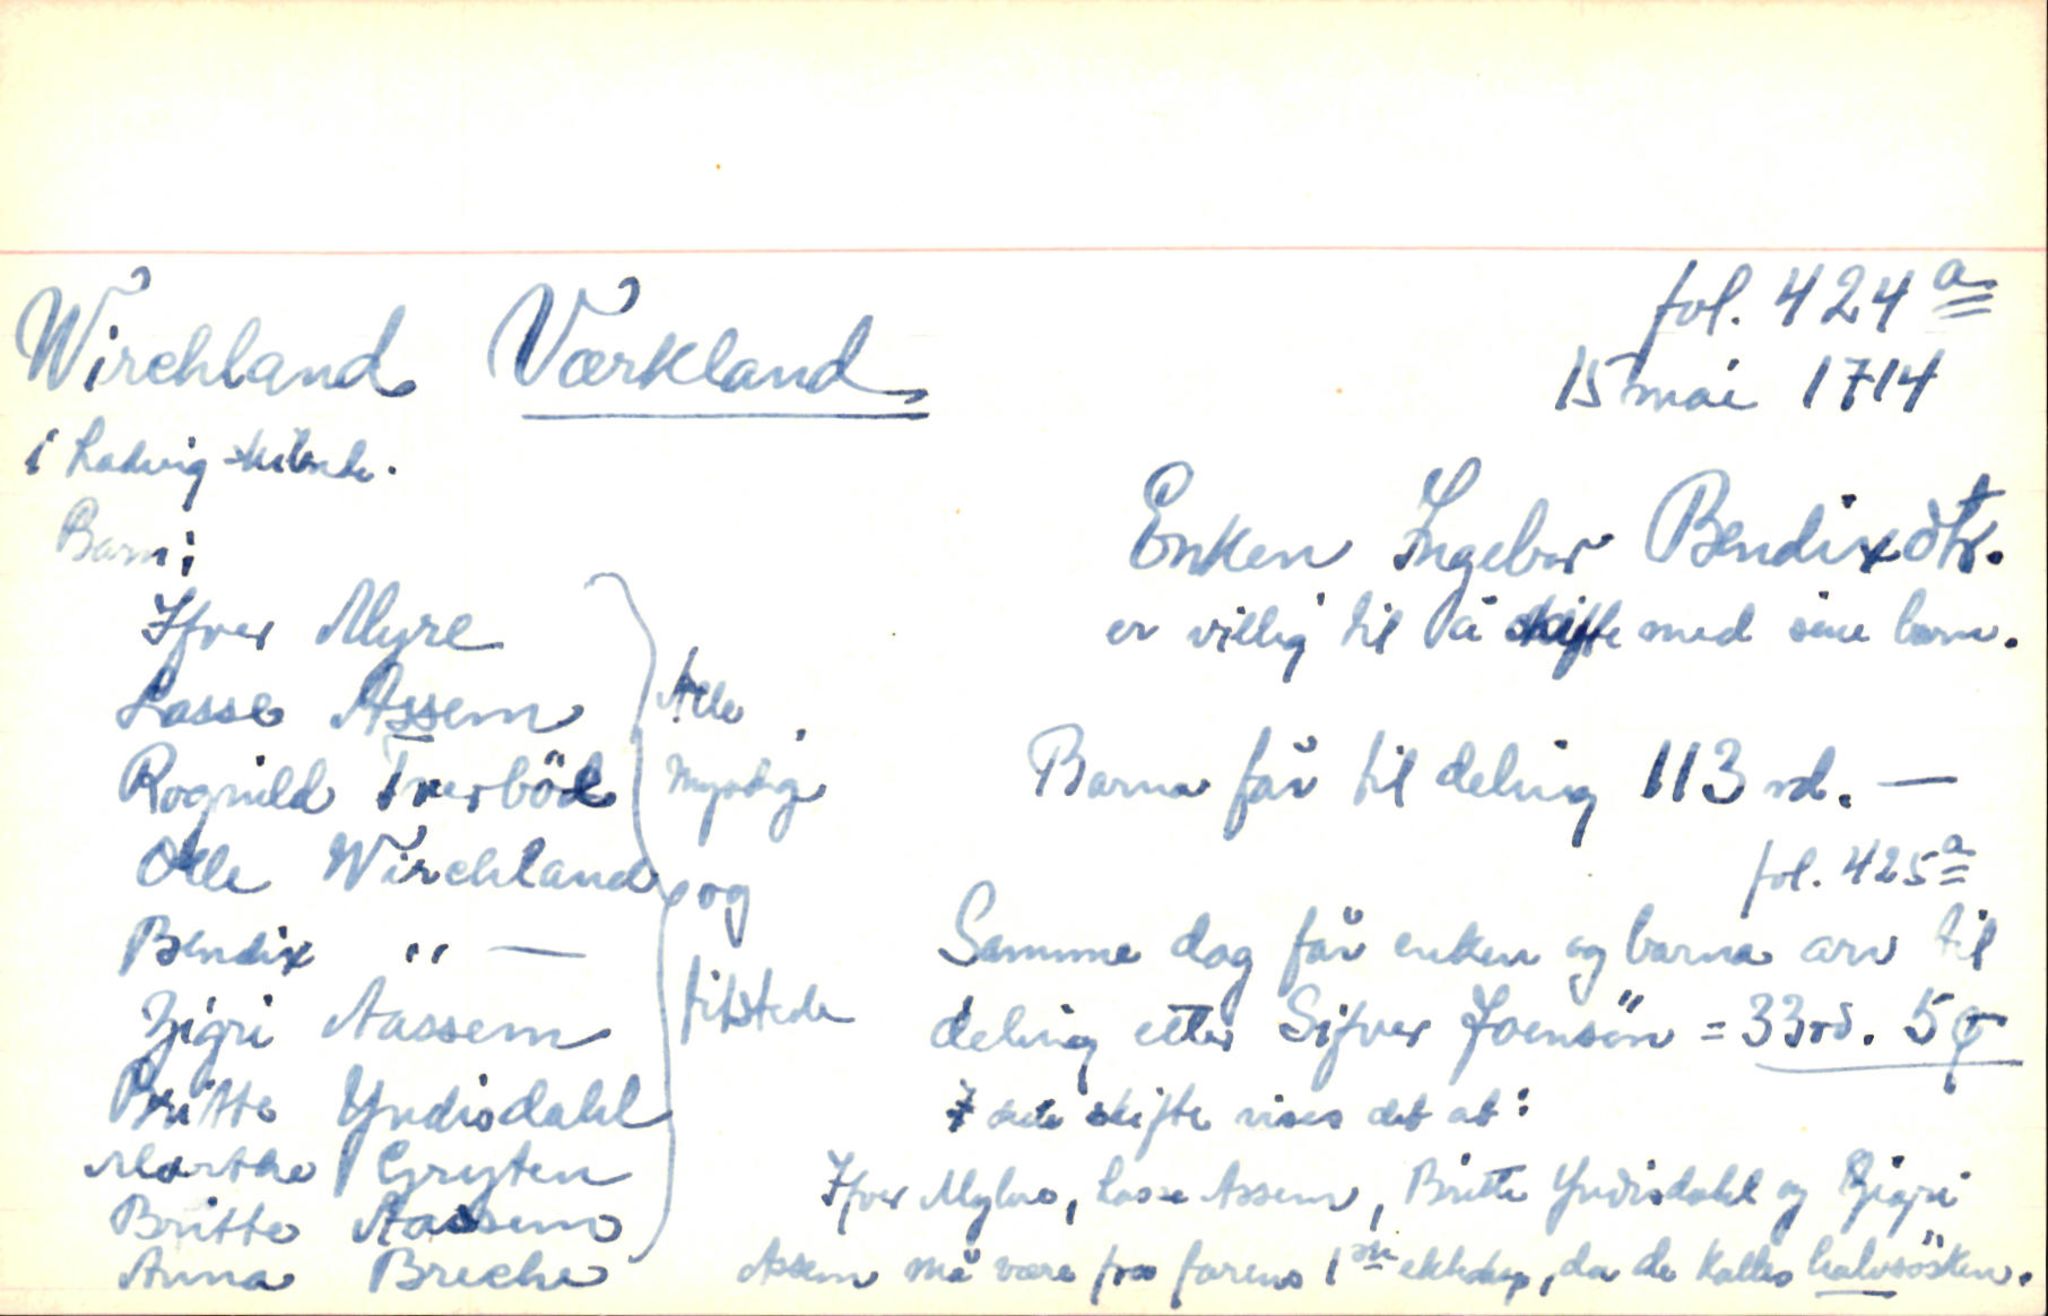 Wirchland Værkland
fol. 424 a
15 mai 1714
i Ladvig
Barn:
Enken Ingebor Bendixdtr.
er villig til å skifte med sine barn.
Ifver Myre
Lasse Assem
Rognild Tverböe
Olle Wirchland
Bendix " —
Zigri Aassem
Britte Yndisdahl
Marthe Gryten
Britte Aassem
Anna Breche
Alle
myndig
og
tilstede
Barna får til deling 113 rd. —
fol. 425 a
Samme dag får enken og barna arv til
deling etter Sifver Joensön = 33 rd. 5
I dette skifte vises det at:
Ifver Myhre, Lasse Assem, Britte Yndisdahl og Zigri
Assem må være fra farens 1ste ekteskap, da de kalles halvsösken.